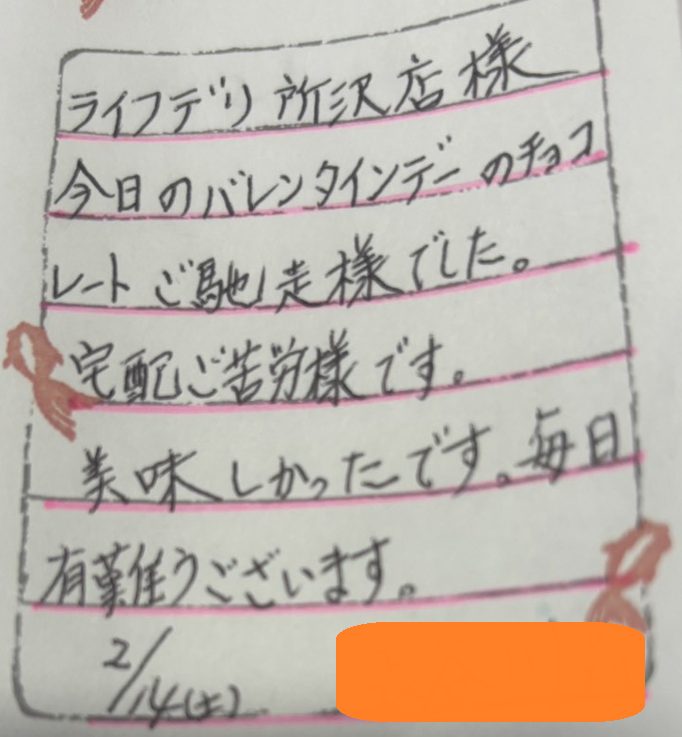 ライフデリ所沢店様
今日のバレンタインデーのチョコ
レートご馳走様でした。
宅配ご苦労様です。
美味しかったです。毎日
有難うございます。
2/14(土)